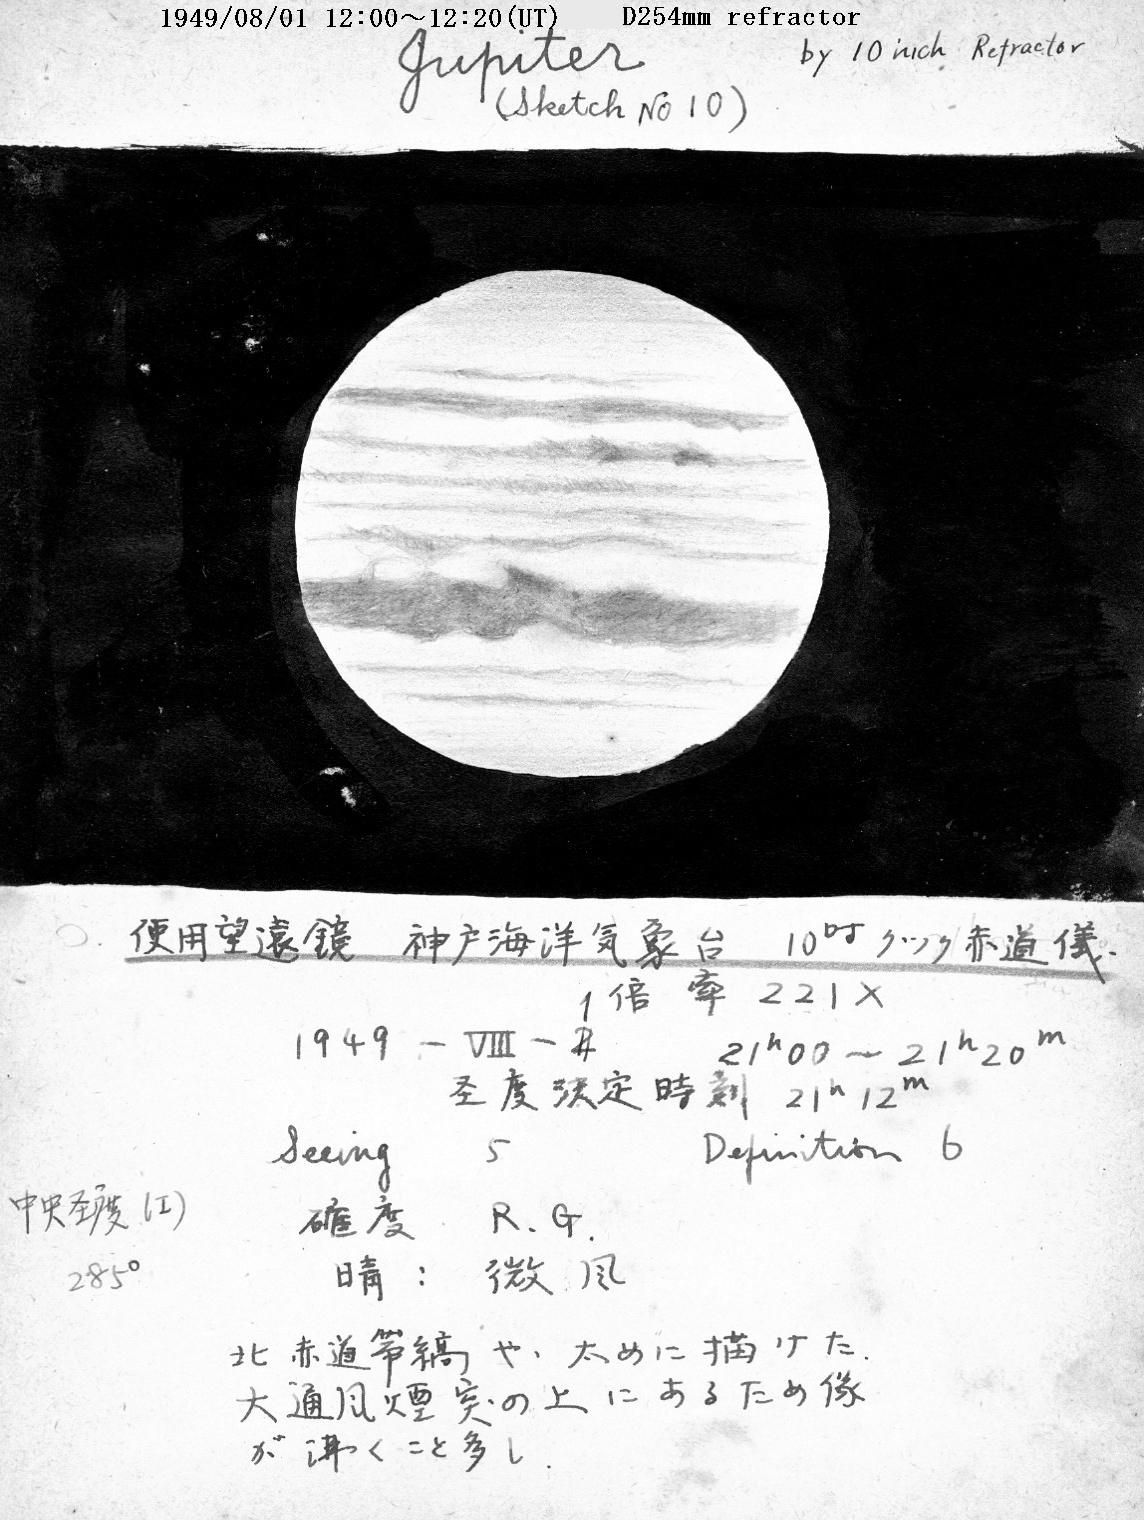 1949/08/01 12:00~12:20(UT) D254mm refractor
Jupiter
by 10 inch Refractor
(Sketch No 10)
使用望遠鏡 神戸海洋気象台 10吋クック赤道儀.
倍率 221×
1949 - VIII - 21ʰ00 ~ 21ʰ20ᵐ
圣度決定時刻 21ʰ12ᵐ
Seeing 5 Definition 6
中央圣度(I)
285°
確度 R.G.
晴: 微風
北赤道帯縞や、太めに描けた.
大通風煙突の上にあるため像
が沸くこと多し.